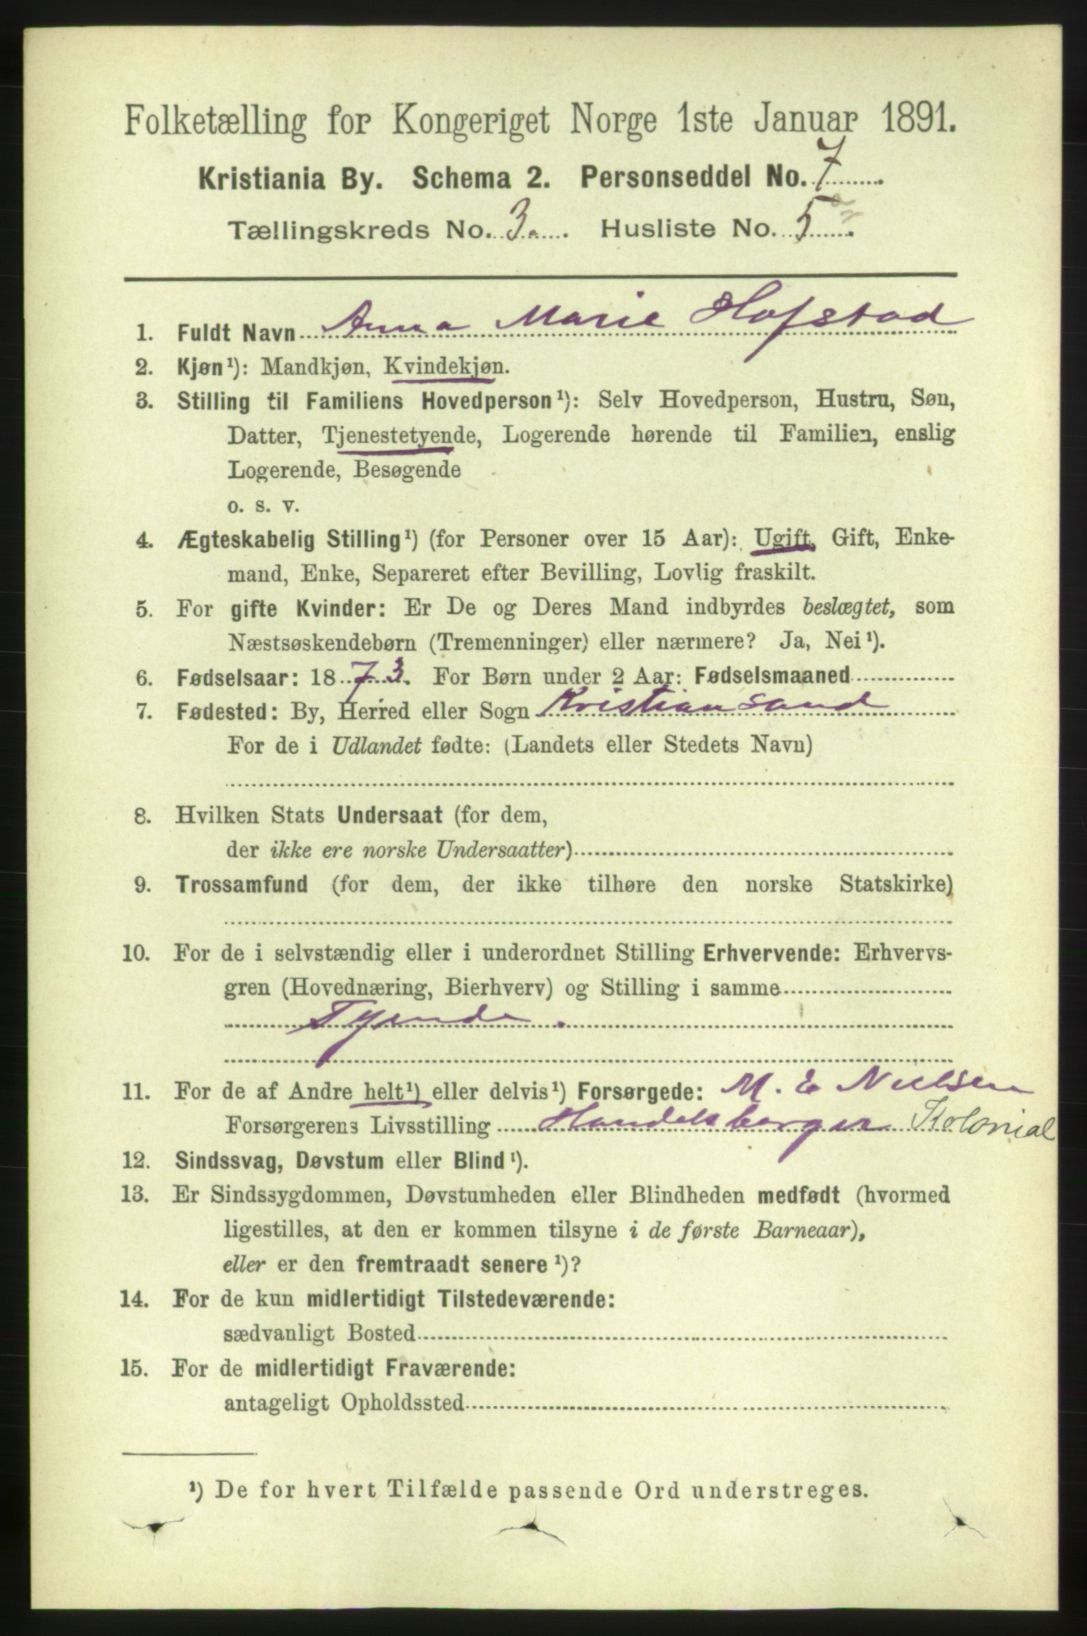 Folketælling for Kongeriget Norge 1ste Januar 1891.
Kristiania By. Schema 2. Personseddel No. 7
Tællingskreds No. 3. Husliste No. 5
1. Fuldt Navn Anna Marie Hofstad
2. Kjøn¹): Mandkjøn, Kvindekjøn.
3. Stilling til Familiens Hovedperson¹): Selv Hovedperson, Hustru, Søn,
Datter, Tjenestetyende, Logerende hørende til Familien, enslig
Logerende, Besøgende
o. s. v.
4. Ægteskabelig Stilling¹) (for Personer over 15 Aar): Ugift, Gift, Enke-
mand, Enke, Separeret efter Bevilling, Lovlig fraskilt.
5. For gifte Kvinder: Er De og Deres Mand indbyrdes beslægtet, som
Næstsøskendebørn (Tremenninger) eller nærmere? Ja, Nei¹).
6. Fødselsaar: 1873. For Børn under 2 Aar: Fødselsmaaned
7. Fødested: By, Herred eller Sogn Kristiansand
For de i Udlandet fødte: (Landets eller Stedets Navn)
8. Hvilken Stats Undersaat (for dem,
der ikke ere norske Undersaatter)
9. Trossamfund (for dem, der ikke tilhøre den norske Statskirke)
10. For de i selvstændig eller i underordnet Stilling Erhvervende: Erhvervs-
gren (Hovednæring, Bierhverv) og Stilling i samme
Tyende.
11. For de af Andre helt¹) eller delvis¹) Forsørgede: M. E Nielsen
Forsørgerens Livsstilling Handelsborger Kolonial
12. Sindssvag, Døvstum eller Blind¹).
13. Er Sindssygdommen, Døvstumheden eller Blindheden medfødt (hvormed
ligestilles, at den er kommen tilsyne i de første Barneaar),
eller er den fremtraadt senere¹)?
14. For de kun midlertidigt Tilstedeværende:
sædvanligt Bosted
15. For de midlertidigt Fraværende:
antageligt Opholdssted
¹) De for hvert Tilfælde passende Ord understreges.